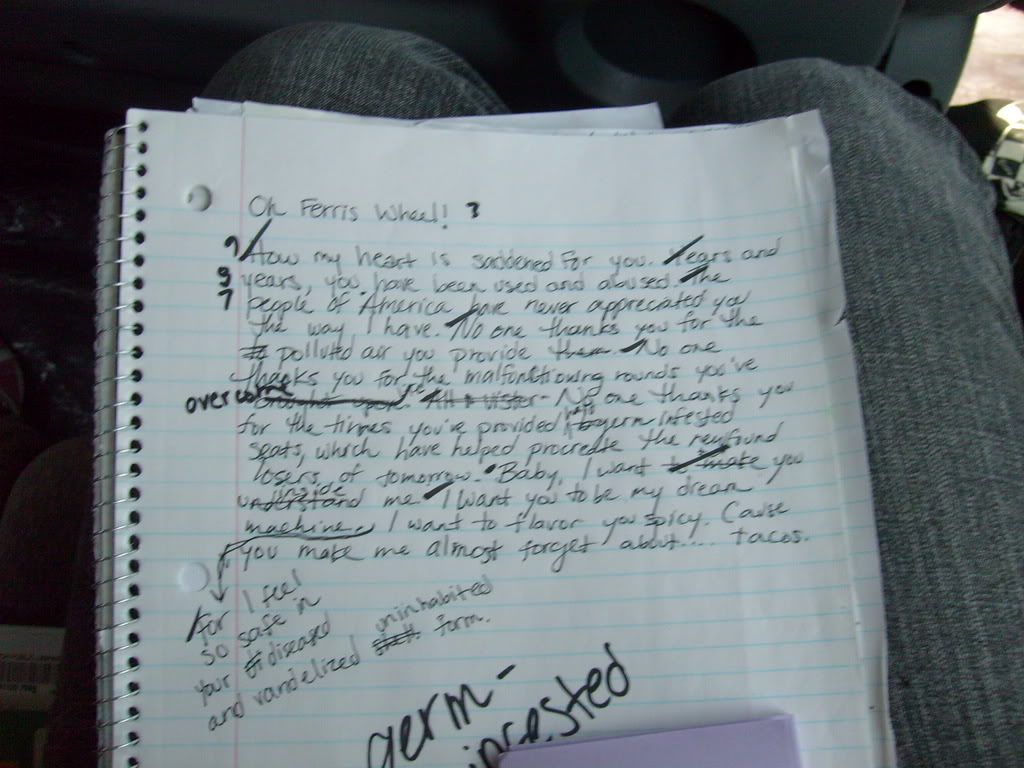 Oh Ferris Wheel! 3
? How my heart is saddened for you. Years and
3 years, you have been used and abused. The
7 people of America have never appreciated you
the way I have. No one thanks you for the
polluted air you provide them. No one
thanks you for the malfunctioning rounds you've
overcome
No one thanks you
for the times you've provided germ infested
seats, which have helped procreate the newfound
losers of tomorrow. Baby, I want to make you
understand me. I want you to be my dream
inside
machine. I want to flavor you spicy. Cause
you make me almost forget about.... tacos.
for I feel
so safe in
your diseased
and vandelized uninhabited form.
germ-
infested